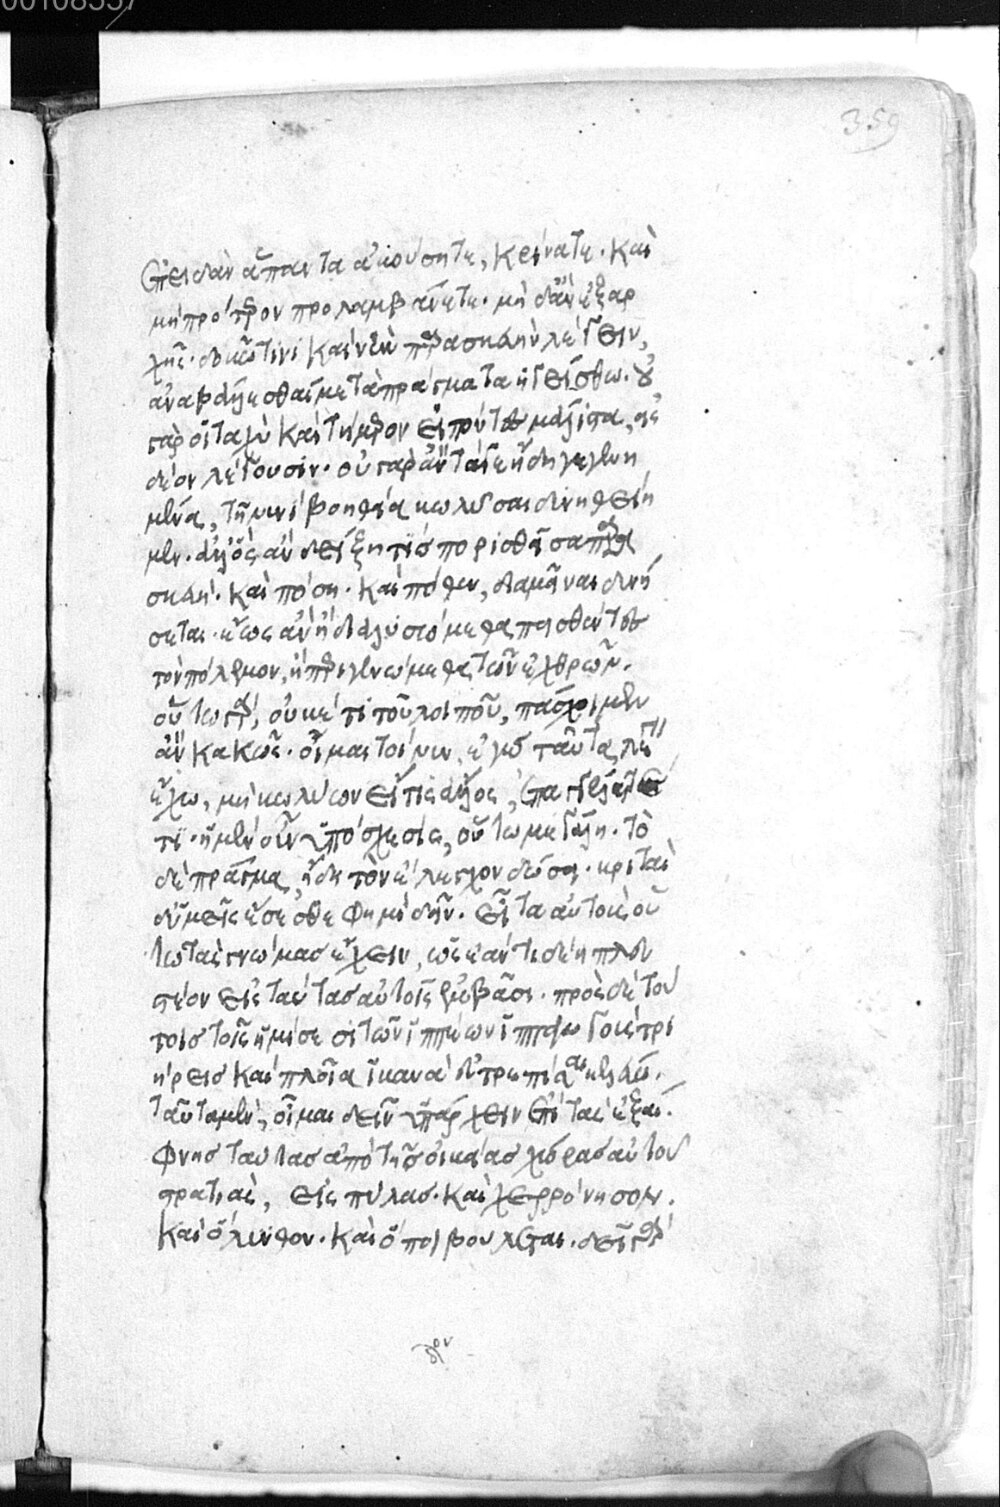 00108557
359
Ἐπειδὰν ἅπαντα ἀκούσητε, κρίνατε. καὶ
μὴ πρότερον προλαμβάνετε. μὴ δ' ἂν ἐξ ἀρ
χῆς. δοκῶ τινι καινὴν παρασκευὴν λέγειν,
ἀναβάλλεσθαί με τὰ πράγματα ἡγείσθω. οὐ
γὰρ οἱ ταχὺ καὶ τήμερον εἰπόντες μάλιστα, εἰς
δέον λέγουσιν. οὐ γὰρ ἂν τά γε ἤδη γεγενη
μένα, τῇ νυνὶ βοηθείᾳ κωλῦσαι δυνηθείη
μεν. ἀλλ' ὃς ἂν δείξῃ τίς πορισθεῖσα παρα
σκευὴ. καὶ πόση. καὶ πόθεν, διαμεῖναι δυνή
σεται. ἕως ἂν ἢ διαλυσόμεθα πεισθέντες
τὸν πόλεμον, ἢ περιγενώμεθα τῶν ἐχθρῶν.
οὕτω γὰρ, οὐκέτι τοῦ λοιποῦ, πάσχοιμεν
ἂν κακῶς. οἶμαι τοίνυν, ἐγὼ ταῦτα λέγειν
ἔχω, μὴ κωλύων εἴ τις ἄλλος, ἐπαγγέλλεταί
τι. ἡ μὲν οὖν ὑπόσχεσις, οὕτω μεγάλη. τὸ
δὲ πρᾶγμα, ἤδη τὸν ἔλεγχον δώσει. κριταὶ
δ' ὑμεῖς ἔσεσθε φημὶ δεῖν. εἶτα αὐτοὺς οὕ
τω τὰς γνώμας ἔχειν, ὡς ἐάν τι δέῃ πλευ
στέον εἰς ταύτας αὐτοῖς ἐμβᾶσι. πρὸς δὲ τού
τοις τοῖς ἡμίσεσι τῶν ἱππέων ἱππαγωγοὺς τρι
ήρεις καὶ πλοῖα ἱκανὰ εὐτρεπίσαι κελεύω.
ταῦτα μὲν, οἶμαι δεῖν ὑπάρχειν ἐπὶ τὰς ἐξαί.
φνης ταύτας ἀπὸ τῆς οἰκείας χώρας αὐτοῦ
στρατιὰς, εἰς πύλας. καὶ χερρόνησον.
καὶ ὄλυνθον. καὶ ὅποι βούλεται. δεῖ γὰρ